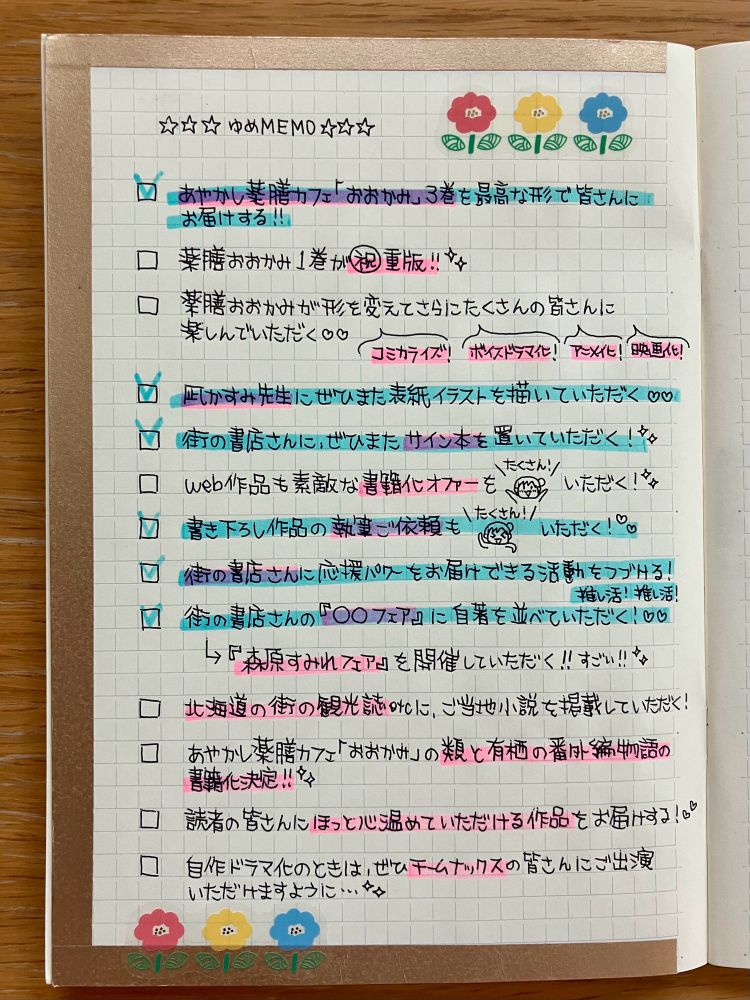 ☆☆☆ ゆめMEMO ☆☆☆
あやかし薬膳カフェ「おおかみ」3巻を最高な形で皆さんに
お届けする!!
薬膳おおかみ1巻が祝重版!!
薬膳おおかみが形を変えてさらにたくさんの皆さんに
楽しんでいただく♡♡
コミカライズ! ボイスドラマ化! アニメ化! 映画化!
凪かすみ先生にぜひまた表紙イラストを描いていただく♡♡
街の書店さんに、ぜひまたサイン本を置いていただく!
たくさん!
web作品も素敵な書籍化オファーを いただく!
たくさん!
書き下ろし作品の執筆ご依頼も いただく!♡♡
街の書店さんに応援パワーをお届けできる活動をつづける!
推し活! 推し活!
街の書店さんの『〇〇フェア』に自著を並べていただく!♡♡
↳『森原すみれフェア』を開催していただく!!すごい!!
北海道の街の観光誌etcに、ご当地小説を掲載していただく!
あやかし薬膳カフェ「おおかみ」の類と有栖の番外編物語の
書籍化決定!!
読者の皆さんにほっと心温めていただける作品をお届けする!♡♡
自作ドラマ化のときは、ぜひチームナックスの皆さんにご出演
いただけますように…